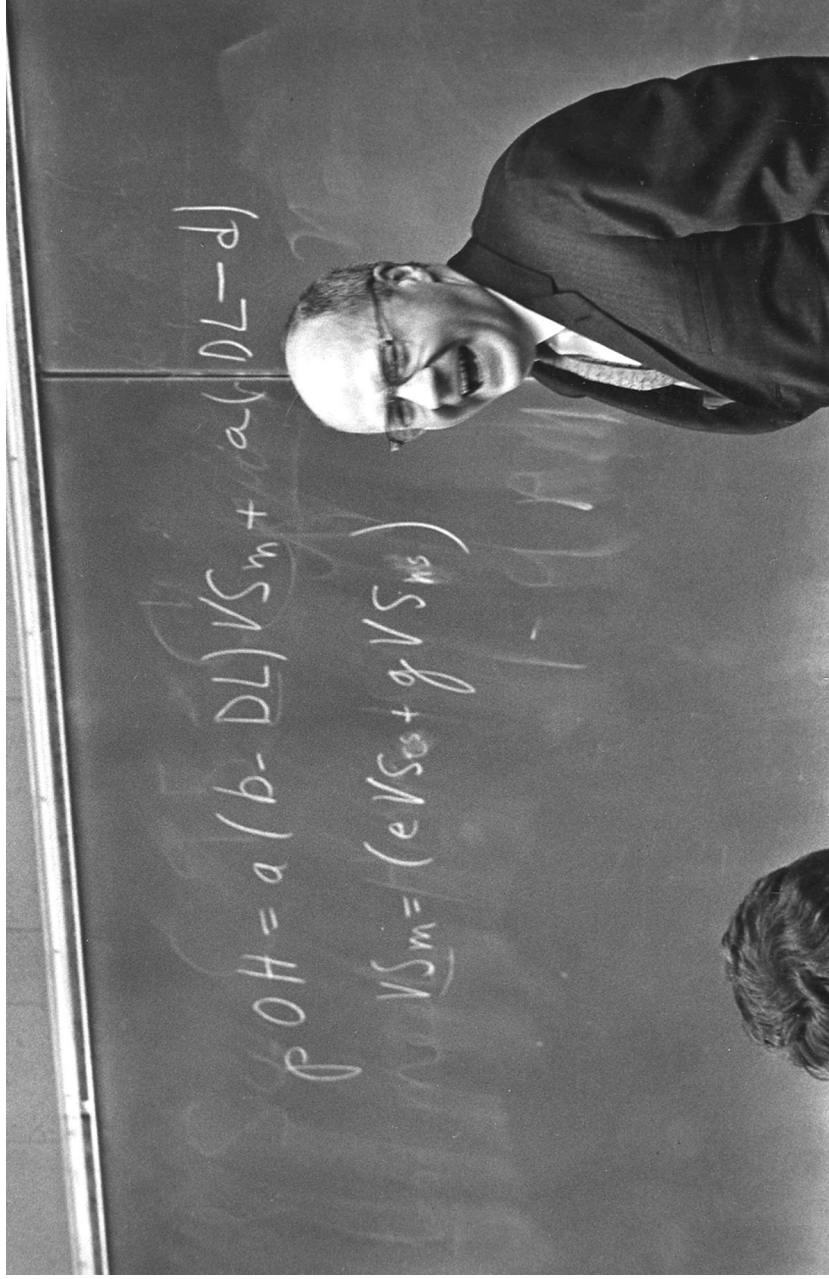 POH = a(b-DL)VSm + a(DL-d)
VSm = (eVScs + gVSns)